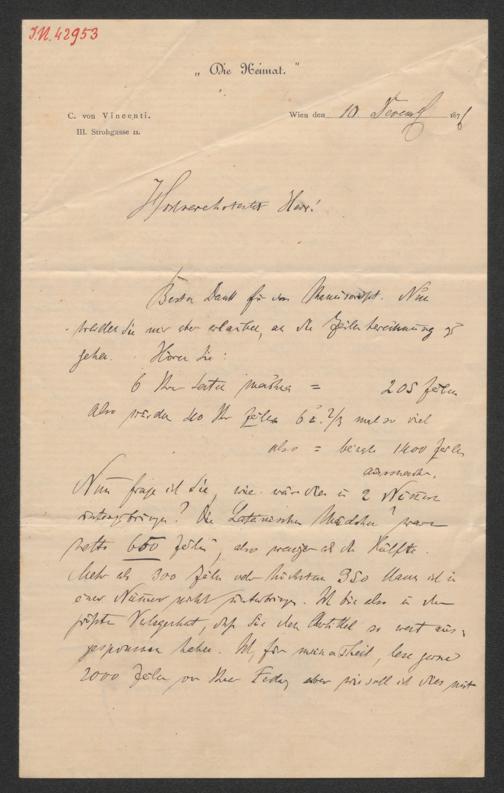 J.N. 42953
„ Die Heimat. "
C. von Vincenti.
III. Strohgasse 11.
Wien den 10 187
Hochverehrtester Herr!
Besten Dank für das Manuscript. Nun
Sie mir aber erlauben, an die Zeilenberechnung zu
gehen. Hören Sie:
6 Ihrer = 205 Zeilen
also würden 40 Ihr 6 2/3 mal so viel
also = beinah 1400 Zeilen
ausmachen.
Nun frage ich Sie, wie wäre dies in 2 Nummern
unterzubringen? Die Mädchen" waren
netto 600 Zeilen, also weniger als die Hälfte.
Mehr als 300 Zeilen oder höchstens 350 kann ich in
einer Nummer nicht unterbringen. Ich bin also in der
größten Verlegenheit, daß Sie den Artikel so weit aus-
gesponnen haben. Ich, für meinen Theil, lese gerne
2000 Zeilen von Ihrer Feder, aber wie soll ich dies mit